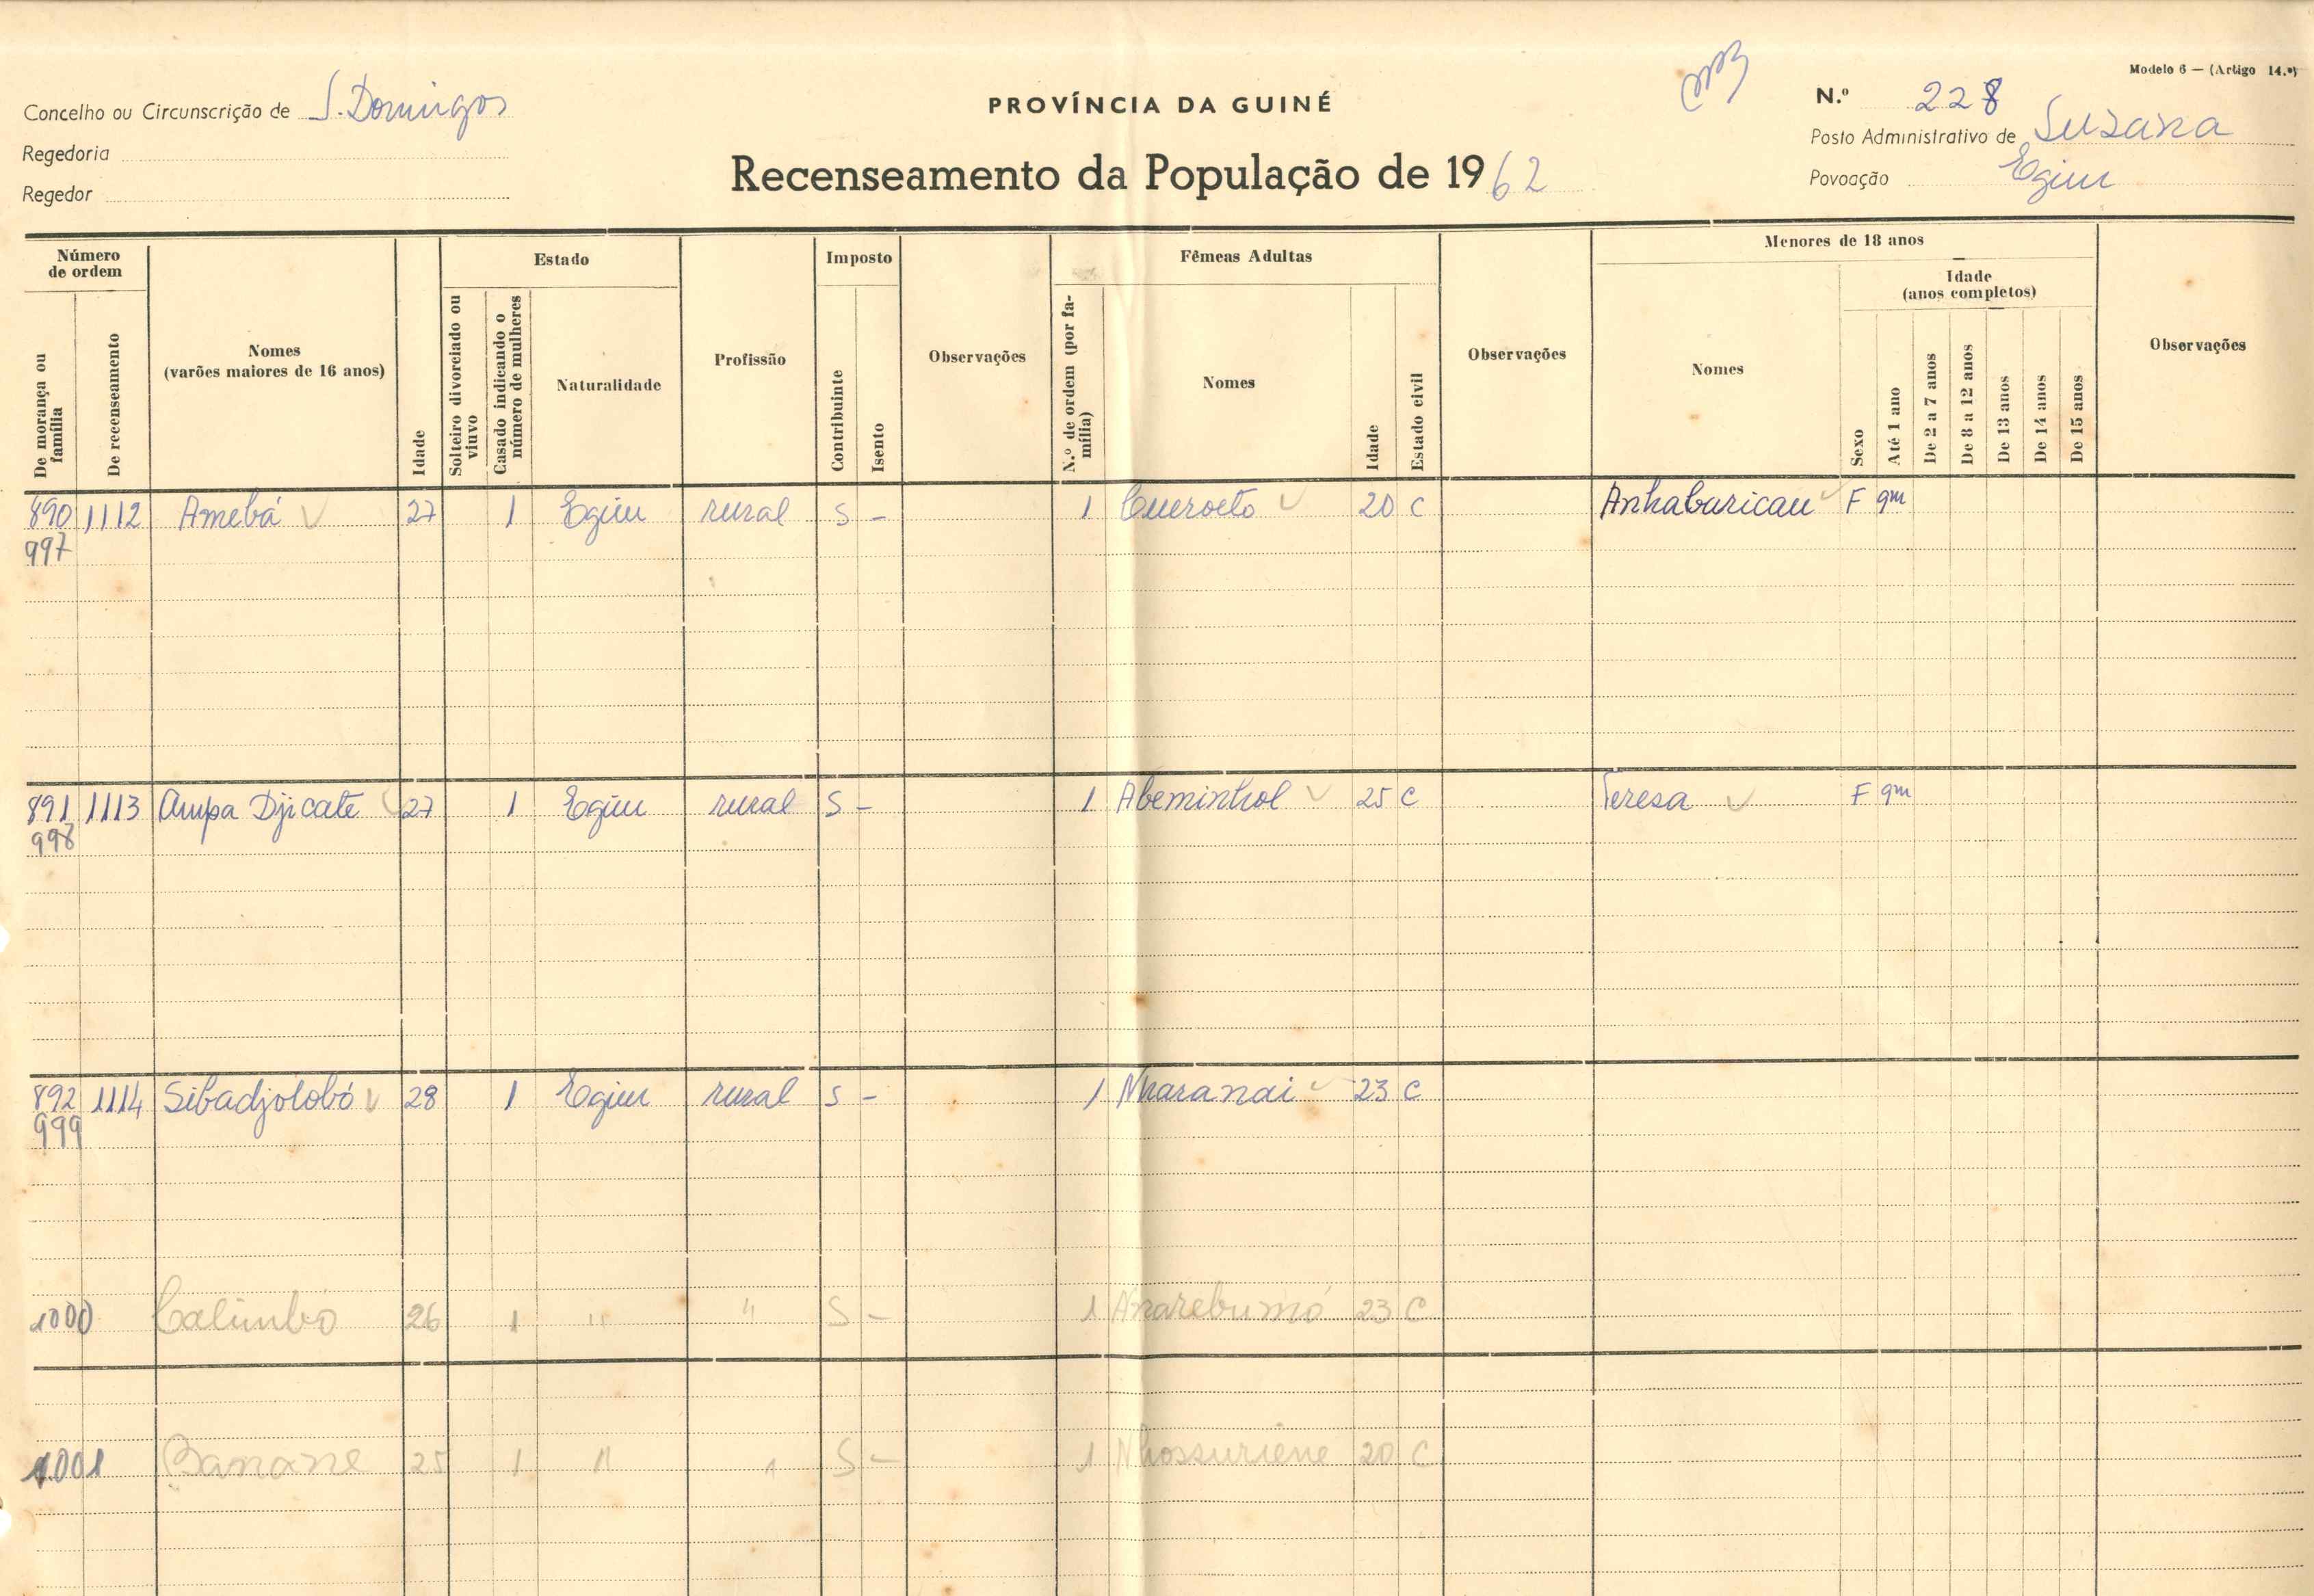 Modelo 6 — (Artigo 14.º)
Concelho ou Circunscrição de S. Domingos
Regedoria
Regedor
PROVÍNCIA DA GUINÉ
Recenseamento da População de 1962
N.º 228
Posto Administrativo de Suzana
Povoação Egim
Número de ordem
De morança ou família
De recenseamento
Nomes
(varões maiores de 16 anos)
Idade
Estado
Solteiro divorciado ou viuvo
Casado indicando o número de mulheres
Naturalidade
Profissão
Imposto
Contribuinte
Isento
Observações
Fêmeas Adultas
N.º de ordem (por família)
Nomes
Idade
Estado civil
Observações
Menores de 18 anos
Nomes
Idade
(anos completos)
Sexo
Até 1 ano
De 2 a 7 anos
De 8 a 12 anos
De 13 anos
De 14 anos
De 15 anos
Observações
890 1112 Amebá 27 1 Egim rural S - 1 Cueroeto 20 C Anhabaricau F 9m
997
891 1113 Ampa Djicate 27 1 Egim rural S - 1 Abeminhol 25 C Teresa F 9m
998
892 1114 Sibadjolobó 28 1 Egim rural S - 1 Nharanai 23 C
999
1000 Calimbó 26 1 " " S - 1 Anarebumó 23 C
1001 Banane 25 1 " " S - 1 Nhossuriene 20 C